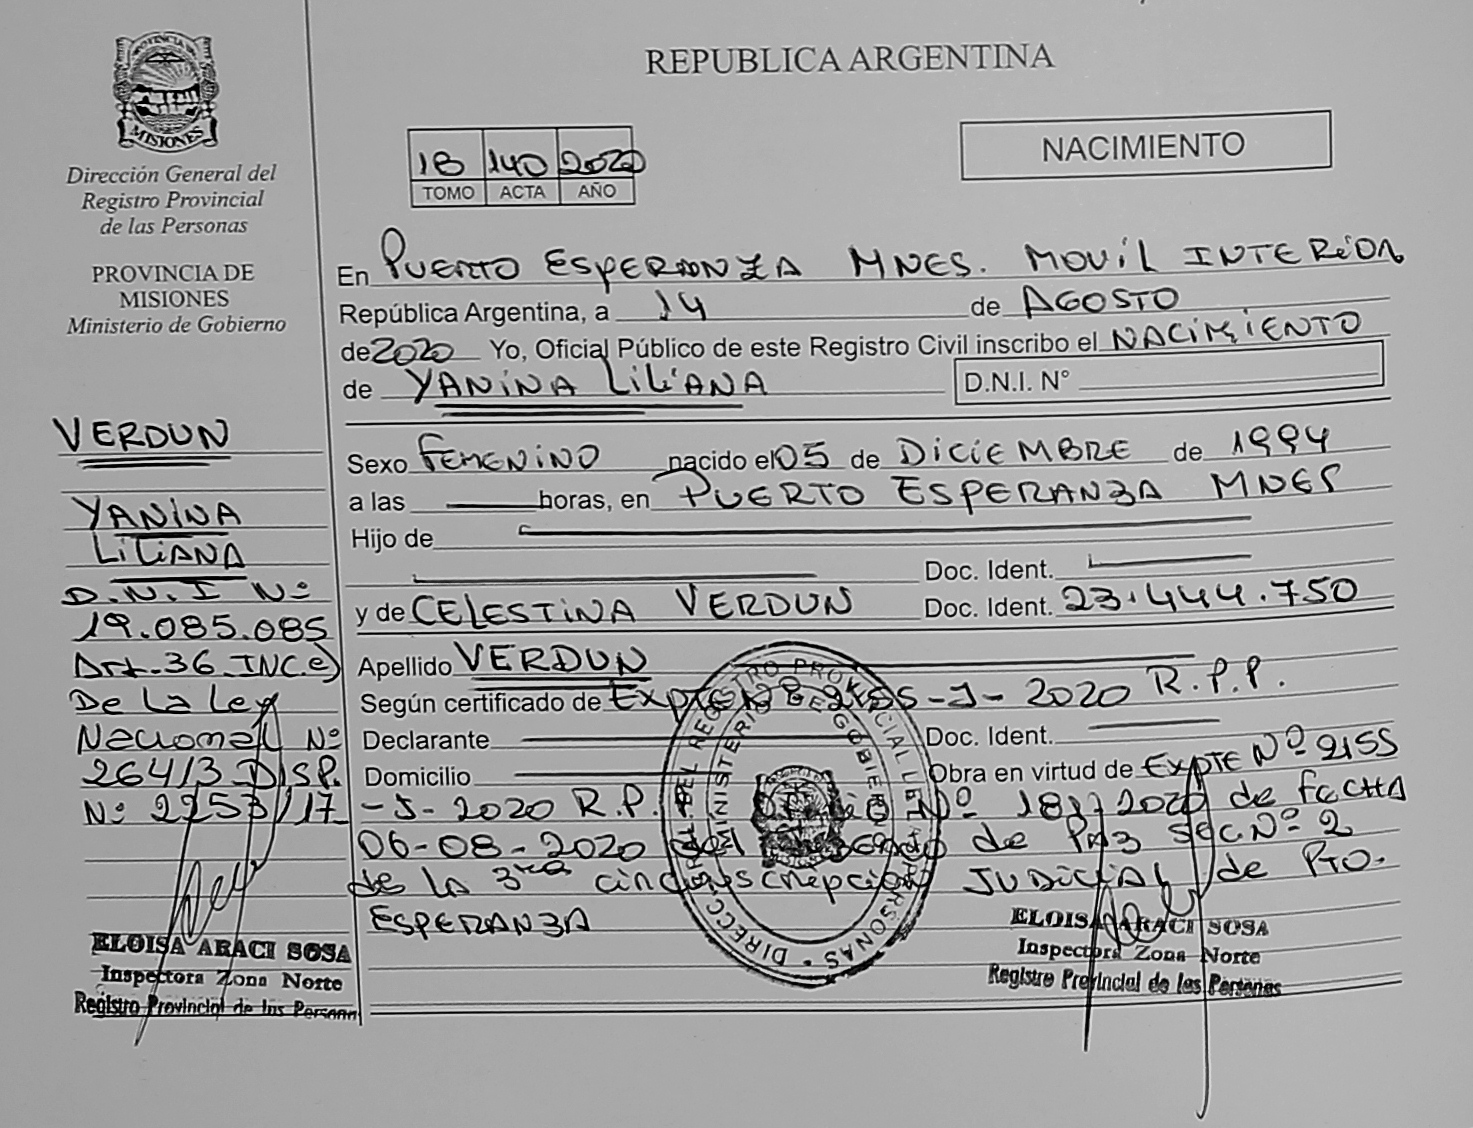 PROVINCIA DE
MISIONES
Dirección General del
Registro Provincial
de las Personas
PROVINCIA DE
MISIONES
Ministerio de Gobierno
REPUBLICA ARGENTINA
18 140 2020
TOMO ACTA AÑO
NACIMIENTO
En PUERTO ESPERANZA MNES. MOVIL INTERIOR
República Argentina, a 14 de AGOSTO
de 2020 Yo, Oficial Público de este Registro Civil inscribo el NACIMIENTO
de YANINA LILIANA D.N.I. N°
Sexo FEMENINO nacido el 05 de DICIEMBRE de 1994
a las horas, en PUERTO ESPERANZA MNES
Hijo de
Doc. Ident.
y de CELESTINA VERDUN Doc. Ident. 23.444.750
Apellido VERDUN
Según certificado de Expte Nº 2155-J-2020 R.P.P.
Declarante Doc. Ident.
Domicilio Obra en virtud de EXPTE Nº 2155
-J-2020 R.P.P. Nº 181/2020 de FECHA
06-08-2020 del de PAZ SEC Nº 2
de la 3ra circunscripción JUDICIAL de PTO.
ESPERANZA
VERDUN
YANINA
LILIANA
D.N.I Nº
19.085.085
Art. 36 INC.e)
De La Ley
Nacional Nº
26413 DISP.
Nº 2253/17
ELOISA ARACI SOSA
Inspectora Zona Norte
Registro Provincial de las Personas
ELOISA ARACI SOSA
Inspectora Zona Norte
Registro Provincial de las Personas
DIRECC DEL REGISTRO PROVINCIAL DE LAS PERSONAS
MINISTERIO DE GOBIERNO